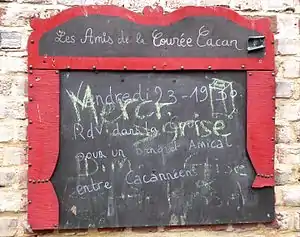 Les Amis de la Courée Cacan
Vendredi 23 - 19
Merci
RdV dans la grise
pour un Banquet Amical
entre Cacannéens